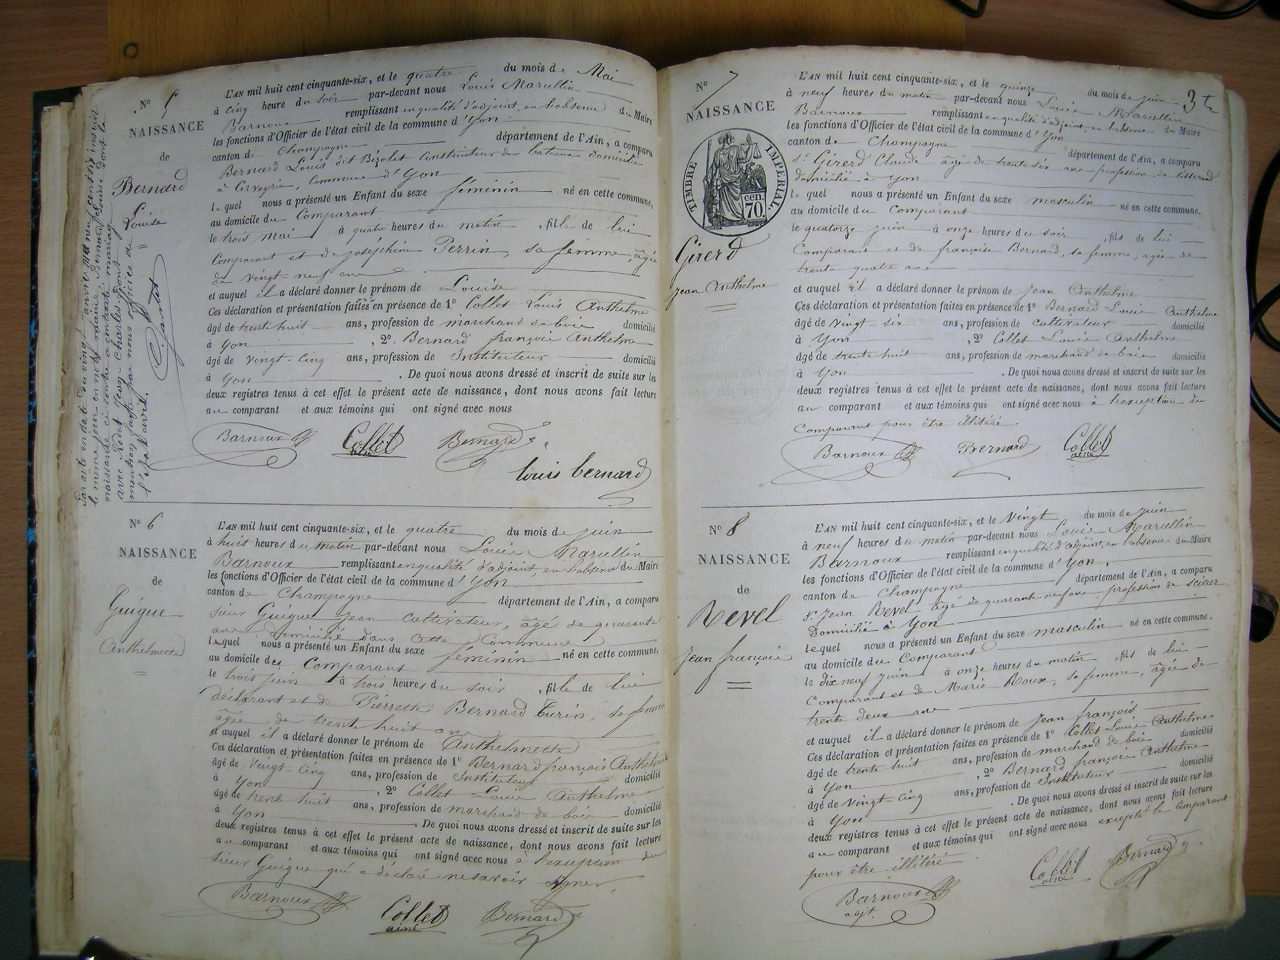 N° 5
NAISSANCE
de
Bernard
Louise
L'AN mil huit cent cinquante-six, et le quatre du mois de Mai
à cinq heure du soir par-devant nous Louis Marcellin
Barnoux remplissant en qualité d'adjoint, en l'absence du Maire
les fonctions d'Officier de l'état civil de la commune d'Yon
canton de Champagne département de l'Ain, a comparu
Bernard Louis dit Bizolet constructeur de bateaux domicilié
à Cerveyrie, commune d'Yon
lequel nous a présenté un Enfant du sexe féminin né en cette commune,
au domicile du Comparant
le trois Mai à quatre heures du matin, fille de lui
Comparant et de Josephine Perrin, sa femme, âgée
de vingt-neuf ans
et auquel il a déclaré donner le prénom de Louise
Ces déclaration et présentation faites en présence de 1° Collet Louis Anthelme
âgé de trente huit ans, profession de marchand de bois domicilié
à Yon, 2° Bernard françois Anthelme
âgé de vingt-cinq ans, profession de Instituteur domicilié
à Yon. De quoi nous avons dressé et inscrit de suite sur les
deux registres tenus à cet effet le présent acte de naissance, dont nous avons fait lecture
au comparant et aux témoins qui ont signé avec nous
Barnoux Collet ainé Bernard
Louis bernard
N° 6
NAISSANCE
de
Guigue
Anthelmette
L'AN mil huit cent cinquante-six, et le quatre du mois de juin
à huit heures du matin par-devant nous Louis Marcellin
Barnoux remplissant en qualité d'adjoint, en l'absence du Maire
les fonctions d'Officier de l'état civil de la commune d'Yon
canton de Champagne département de l'Ain, a comparu
sieur Guigue Jean cultivateur, âgé de quarante
ans domicilié dans cette Commune
lequel nous a présenté un Enfant du sexe féminin né en cette commune,
au domicile des Comparant
le trois juin à trois heures du soir, fille de lui
déclarant et de Pierrette Bernard Turin, sa femme
âgée de trente huit ans
et auquel il a déclaré donner le prénom de Anthelmette
Ces déclaration et présentation faites en présence de 1° Bernard françois Anthelme
âgé de vingt-cinq ans, profession de Instituteur domicilié
à Yon, 2° Collet Louis Anthelme
âgé de trente huit ans, profession de marchand de bois domicilié
à Yon. De quoi nous avons dressé et inscrit de suite sur les
deux registres tenus à cet effet le présent acte de naissance, dont nous avons fait lecture
au comparant et aux témoins qui ont signé avec nous à l'exception du
sieur Guigue qui a déclaré ne savoir signer.
Barnoux Collet ainé Bernard
N° 7
NAISSANCE
TIMBRE IMPÉRIAL
cen. 70.
Girerd
Jean Anthelme
L'AN mil huit cent cinquante-six, et le quinze du mois de juin
à neuf heures du matin par-devant nous Louis Marcellin
Barnoux remplissant en qualité d'adjoint, en l'absence du Maire
les fonctions d'Officier de l'état civil de la commune d'Yon
canton de Champagne département de l'Ain, a comparu
sr Girerd Claude âgé de trente six ans profession de
domicilié à Yon
lequel nous a présenté un Enfant du sexe masculin né en cette commune,
au domicile du Comparant
le quatorze juin à onze heures du soir, fils de lui
Comparant et de françoise Bernard, sa femme, âgée de
trente quatre ans
et auquel il a déclaré donner le prénom de Jean Anthelme
Ces déclaration et présentation faites en présence de 1° Bernard Louis Anthelme
âgé de vingt-six ans, profession de cultivateur domicilié
à Yon, 2° Collet Louis Anthelme
âgé de trente huit ans, profession de marchand de bois domicilié
à Yon. De quoi nous avons dressé et inscrit de suite sur les
deux registres tenus à cet effet le présent acte de naissance, dont nous avons fait lecture
au comparant et aux témoins qui ont signé avec nous à l'exception du
Comparant pour être illitéré
Barnoux Bernard Collet ainé
N° 8
NAISSANCE
de
Revel
Jean françois
L'AN mil huit cent cinquante-six, et le vingt du mois de juin
à neuf heures du matin par-devant nous Louis Marcellin
Barnoux remplissant en qualité d'adjoint, en l'absence du Maire
les fonctions d'Officier de l'état civil de la commune d'Yon,
canton de Champagne département de l'Ain, a comparu
sr Jean Revel âgé de quarante neuf ans profession de scieur
domicilié à Yon
lequel nous a présenté un Enfant du sexe masculin né en cette commune,
au domicile du Comparant
le dix neuf juin à onze heures du matin, fils de lui
Comparant et de Marie Roux, sa femme, âgée de
trente deux ans
et auquel il a déclaré donner le prénom de Jean françois
Ces déclaration et présentation faites en présence de 1° Collet Louis Anthelme
âgé de trente huit ans, profession de marchand de bois domicilié
à Yon, 2° Bernard françois Anthelme
âgé de vingt-cinq ans, profession de Instituteur domicilié
à Yon. De quoi nous avons dressé et inscrit de suite sur les
deux registres tenus à cet effet le présent acte de naissance, dont nous avons fait lecture
au comparant et aux témoins qui ont signé avec nous excepté le Comparant
pour être illitéré
Collet ainé Bernard
Barnoux
adjt.